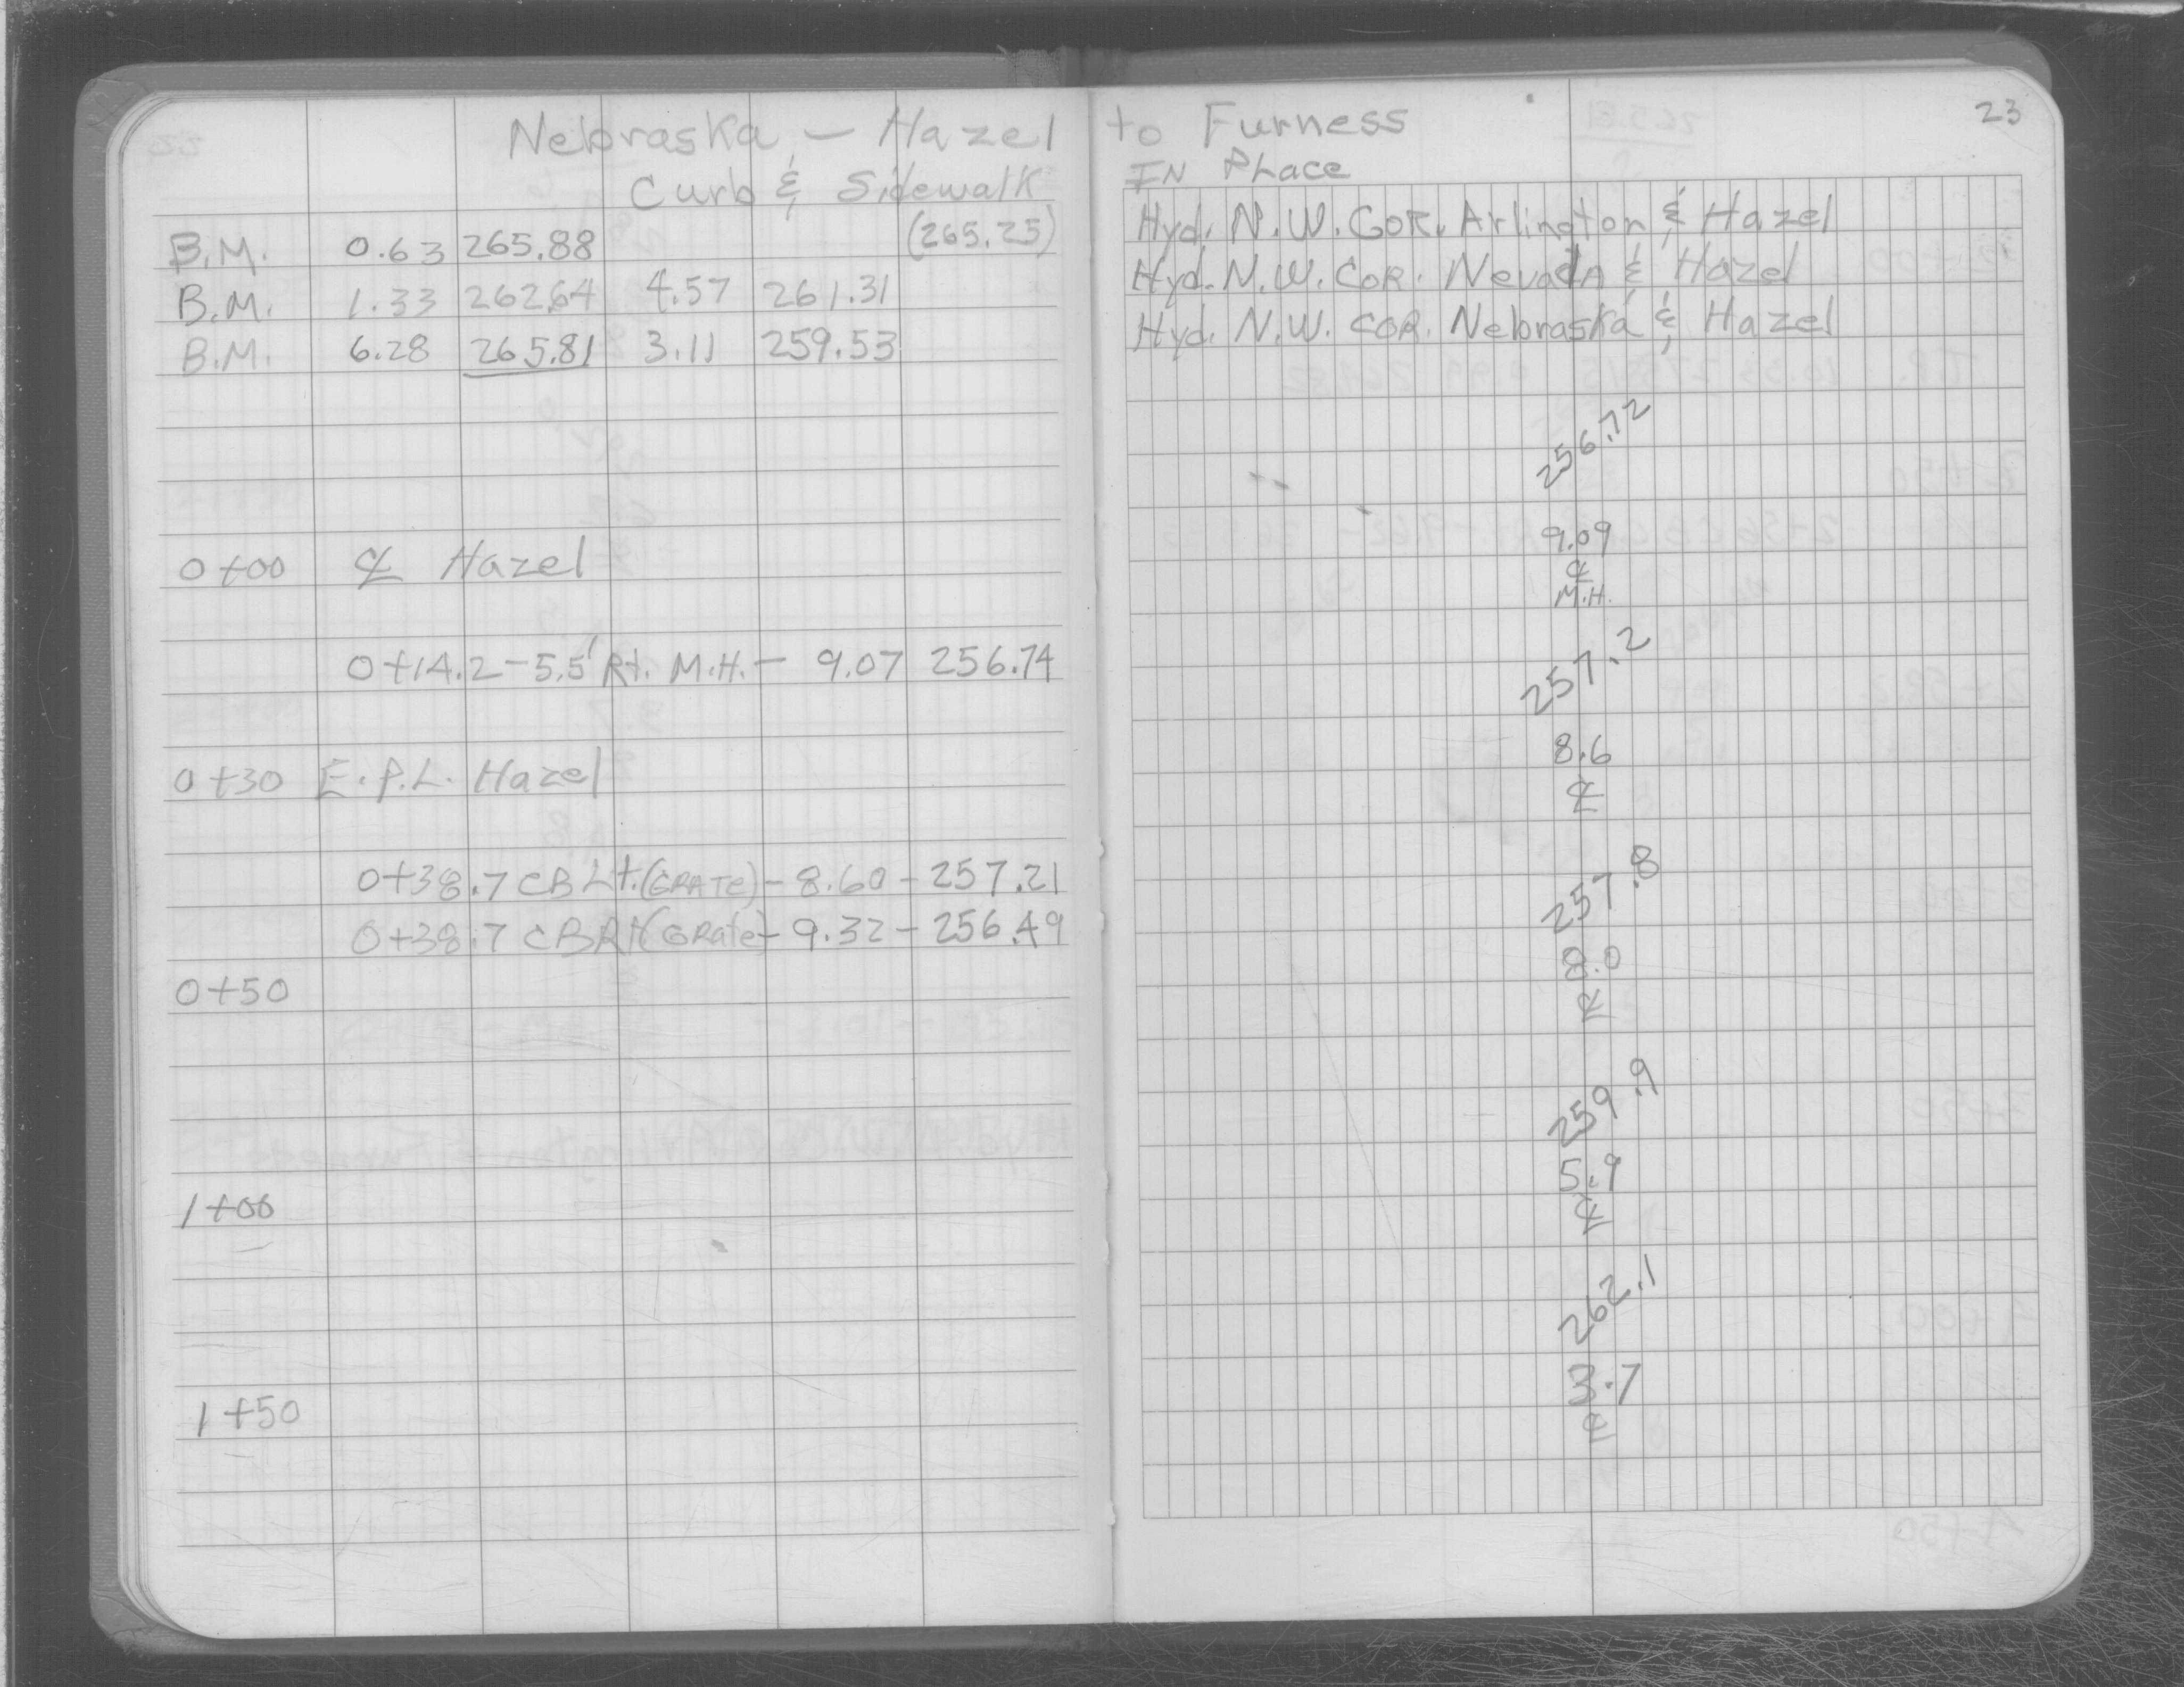 Nebraska - Hazel to Furness
23
Curb & Sidewalk IN PLace
B.M. 0.63 265.88 (265.25) Hyd. N.W. COR. Arlington & Hazel
B.M. 1.33 262.64 4.57 261.31 Hyd. N.W. COR. Nevada & Hazel
B.M. 6.28 265.81 3.11 259.53 Hyd. N.W. COR. Nebraska & Hazel
256.72
0+00 ℄ Hazel 9.09
℄
M.H.
0+14.2-5.5' Rt. M.H. - 9.07 256.74
257.2
0+30 E.P.L. Hazel 8.6
℄
0+38.7 CB Lt. (GRATE) - 8.60 - 257.21
257.8
0+38.7 CB Rt (GRate) - 9.32 - 256.49
0+50 8.0
℄
259.9
1+00 5.9
℄
262.1
1+50 3.7
℄